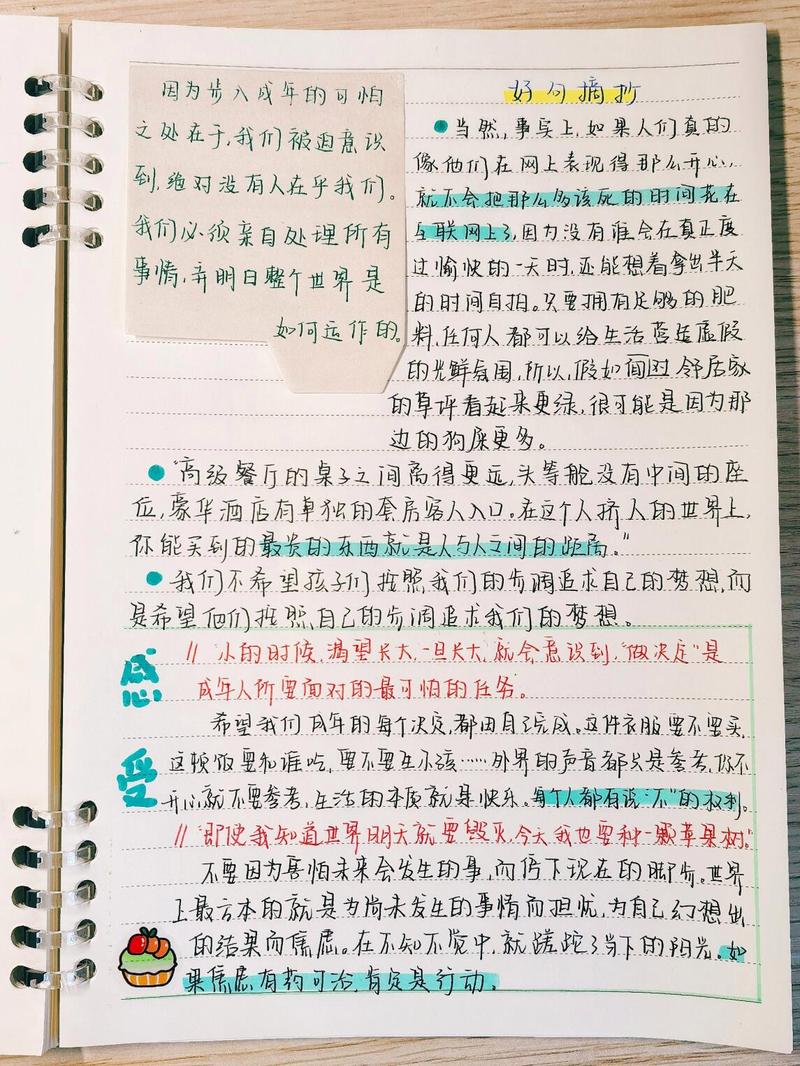 因为步入成年的可怕
之处在于,我们被迫意识
到,绝对没有人在乎我们。
我们必须亲自处理所有
事情,弄明白整个世界是
如何运作的。
好句摘抄
当然,事实上,如果人们真的
像他们在网上表现得那么开心,
就不会把那么多该死的时间花在
互联网上了,因为没有谁会在真正度
过愉快的一天时,还能想着拿出半天
的时间自拍。只要拥有足够的肥
料,任何人都可以给生活营造虚假
的光鲜氛围,所以,假如面对邻居家
的草评看起来更绿,很可能是因为那
边的狗屎更多。
“高级餐厅的桌子之间离得更远,头等舱没有中间的座
位,豪华酒店有单独的套房客人入口。在这个人挤人的世界上,
你能买到的最贵的东西就是人与人之间的距离。”
我们不希望孩子们按照我们的步调追求自己的梦想,而
是希望他们按照自己的步调追求我们的梦想。
感
受
// “小的时候,渴望长大,一旦长大,就会意识到,“做决定”是
成年人所要面对的最可怕的任务。
希望我们成年的每个决定,都由自己完成。这件衣服要不要买,
这顿饭要和谁吃,要不要生小孩……外界的声音都只是参考,你不
开心就不要参考,生活的本质就是快乐。每个人都有说“不”的权利。
// “即使我知道世界明天就要毁灭,今天我也要种一颗苹果树。”
不要因为害怕未来会发生的事,而停下现在的脚步。世界
上最亏本的就是为尚未发生的事情而担忧,为自己幻想出
的结果而焦虑。在不知不觉中,就蹉跎了当下的阳光。如
果焦虑有药可治,肯定是行动。